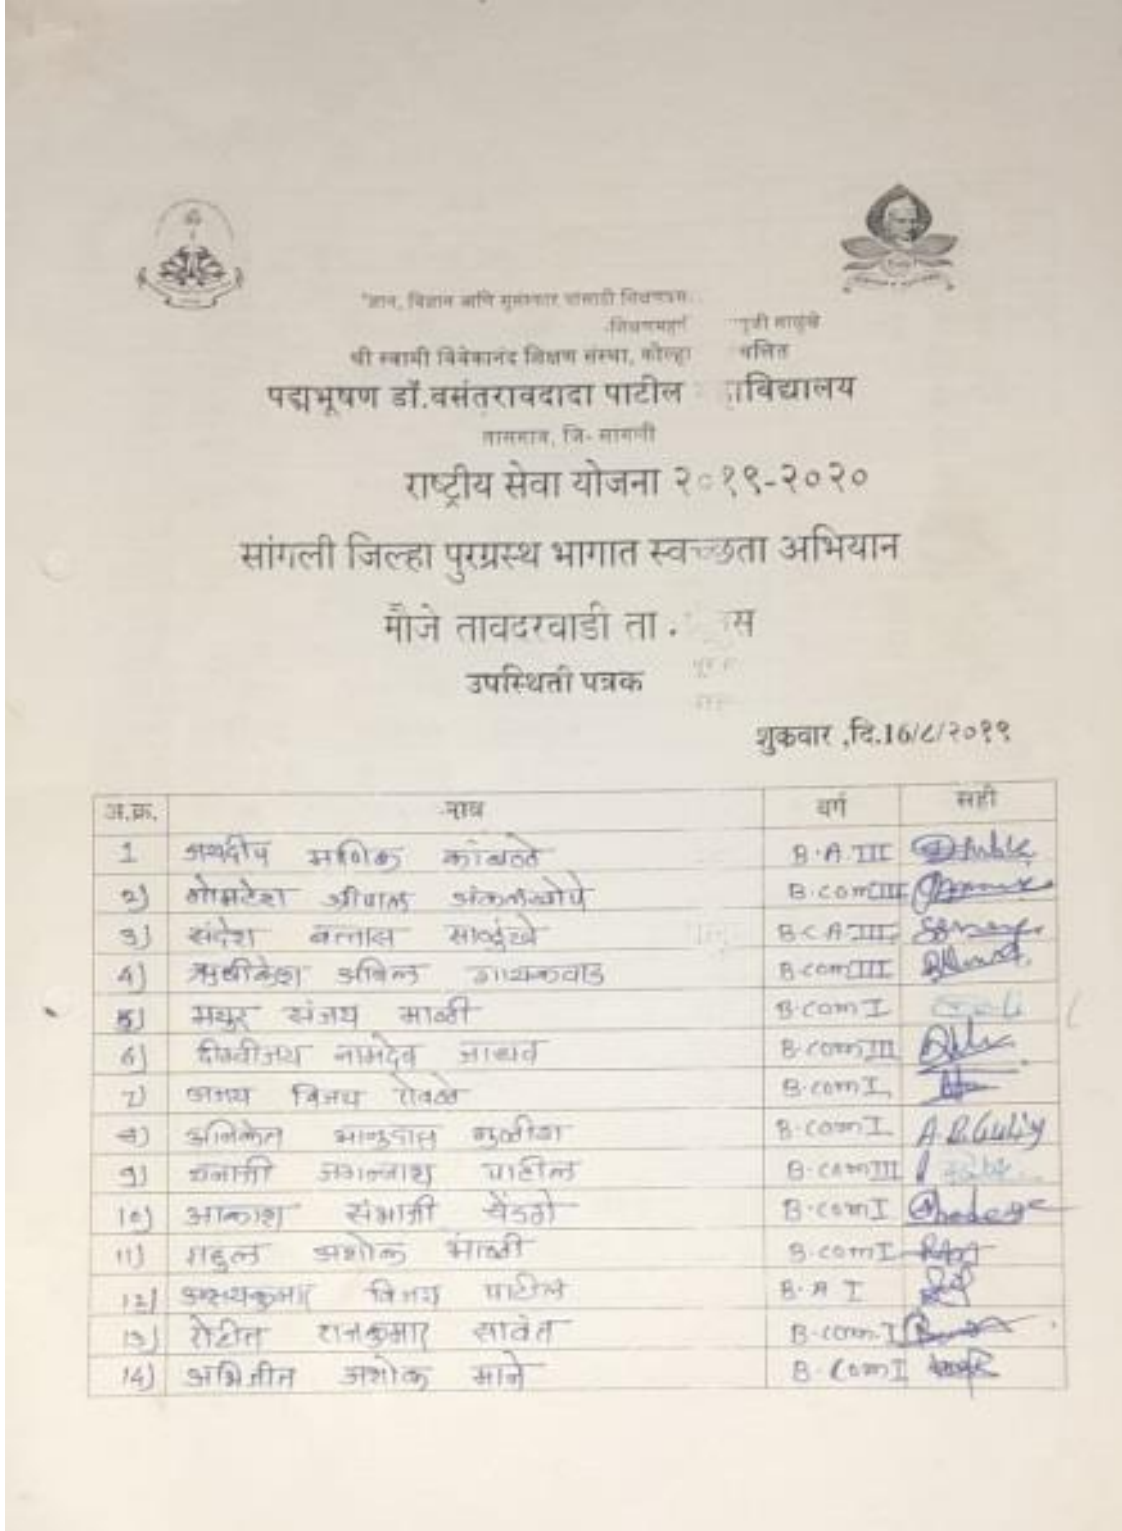 "ज्ञान, विज्ञान आणि सुसंस्कार यांसाठी शिक्षणप्रसा..
श्री स्वामी विवेकानंद शिक्षण संस्था, कोल्हा
पद्मभूषण डॉ.वसंतरावदादा पाटील ाविद्यालय
तासगाव, जि- सांगली
राष्ट्रीय सेवा योजना २०१९-२०२०
सांगली जिल्हा पुरग्रस्थ भागात स्वच्छता अभियान
मौजे तावदरवाडी ता . स
उपस्थिती पत्रक
शुक्रवार ,दि.16/८/२०१९
अ.क्र. नाव वर्ग सही
1 जयदीप माणिक कांबळे B.A.III
2) गोमटेश श्रीपाल अंकलखोपे B.comIII
3) संदेश साळुंखे B.C.A.III
4) ऋषीकेश अनिल गायकवाड B.comIII
5) मयुर संजय माळी B.com I
6) दिग्वीजय नामदेव जाधव B.com III
7) अजय विजय B.com I
8) अनिकेत भानुदास B.com I
9) धनाजी जगन्नाथ पाटील B.com III
10) आकाश संभाजी B.com I
11) राहुल अशोक माळी B.com I
12) अक्षयकुमार विजय पाटील B.A I
13) रोहीत राजकुमार सावंत B.com.I
14) अभिजीत अशोक माने B.Com I